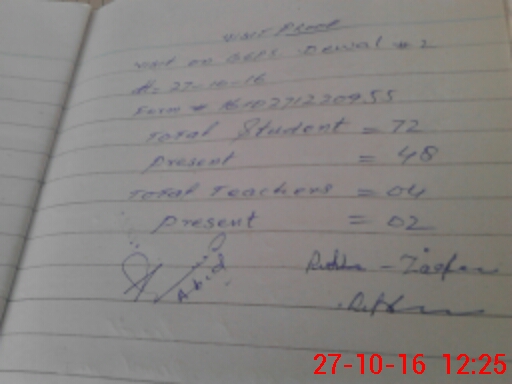 Visit Proof
Visit on GGPS Dewal # 2
dt. 27-10-16
Form # 1610271220955
Total Student = 72
present = 48
Total Teachers = 04
present = 02
Abid
27-10-16 12:25